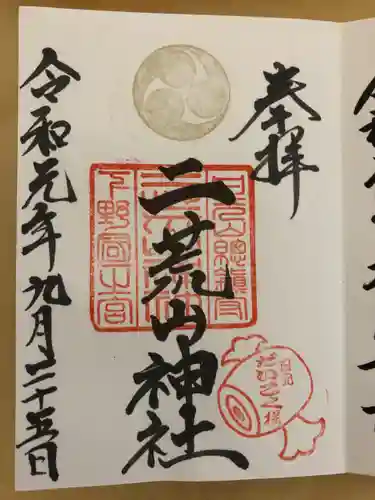 奉拝
二荒山神社
令和元年九月二十五日
日光山総鎮守
下野国一之宮
日光
だいこく様